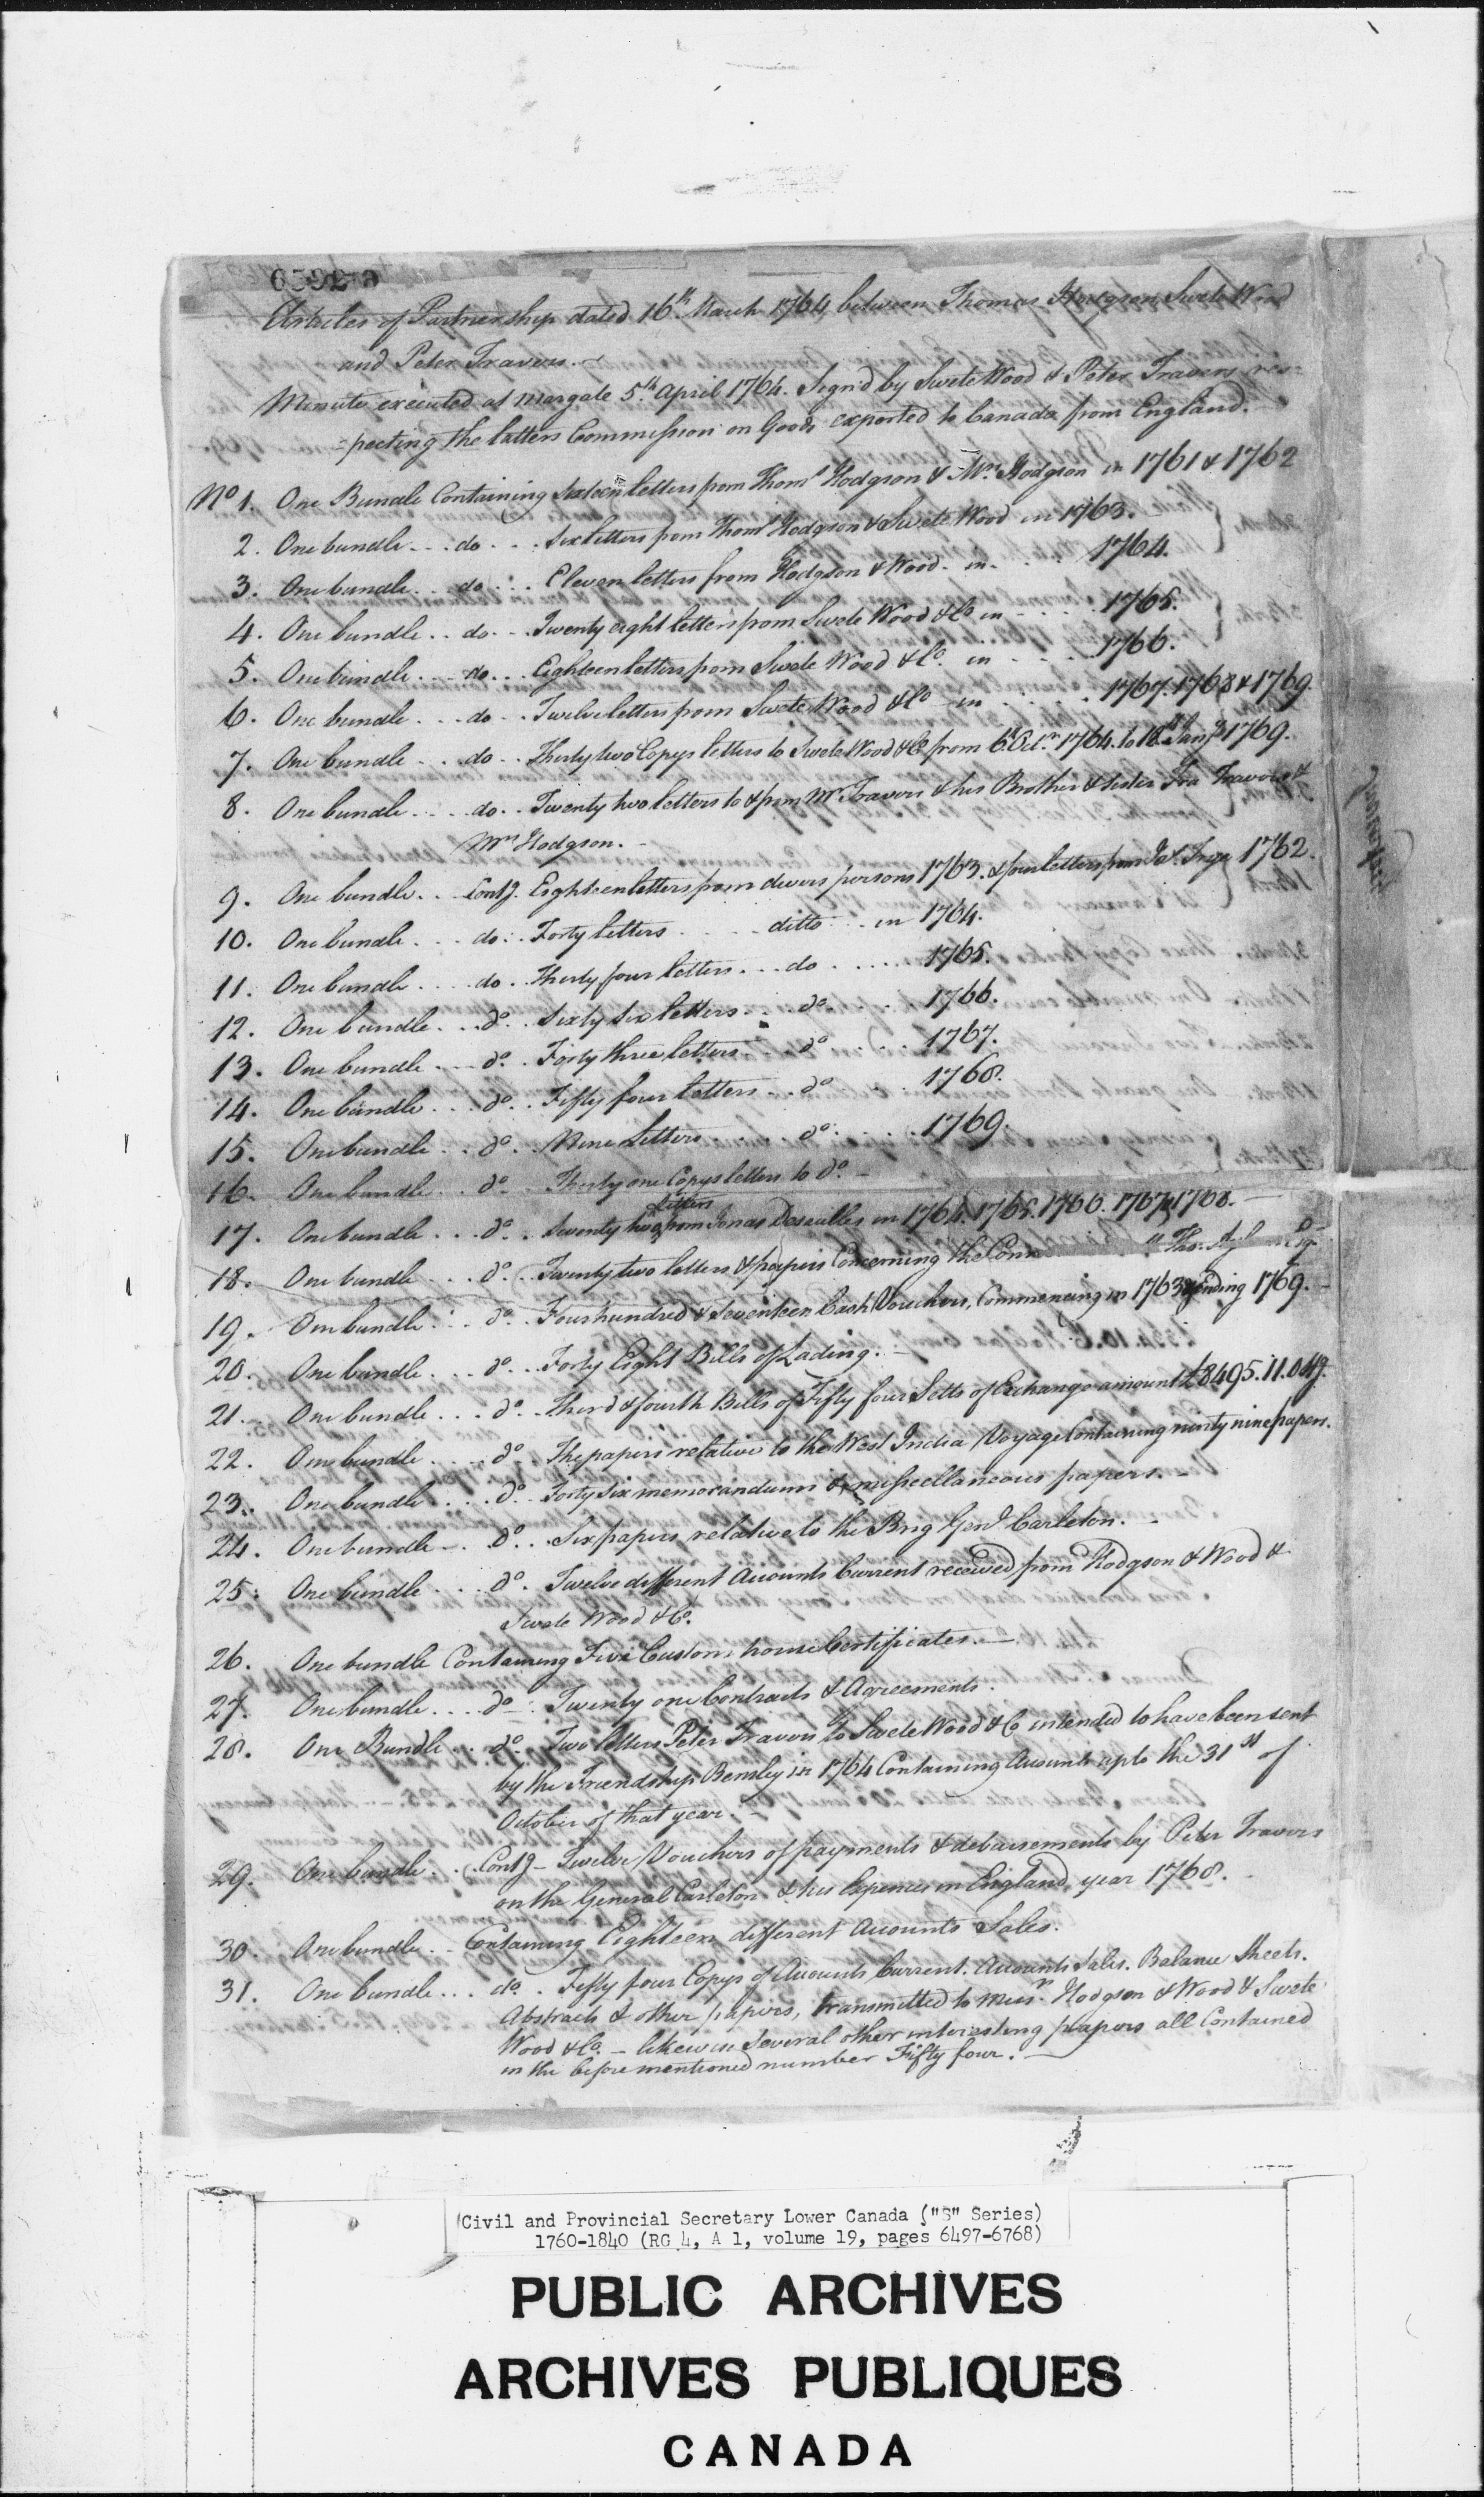 Articles of Partnership dated 16th March 1764, between Thomas Hodgson Swete Wood
and Peter Travers.
Minute executed at Margate 5th April 1764. Sign'd by Swete Wood & Peter Travers res=
=pecting the latters Commission on Goods exported to Canada from England.
No 1. One Bundle Containing sixteen letters from Thoms Hodgson & Mrs Hodgson in 1761 & 1762
2. One bundle... do... six letters from Thoms Hodgson & Swete Wood in 1763.
3. One bundle... do... Eleven letters from Hodgson & Wood in... 1764.
4. One bundle.. do... Twenty eight letters from Swete Wood & Co in... 1765.
5. One bundle... do... Eighteen letters from Swete Wood & Co. in... 1766.
6. One bundle... do.. Twelve letters from Swete Wood & Co in... 1767. 1768 & 1769.
7. One bundle... do.. Thirty two Copys letters to Swete Wood & Co from 6th Octr. 1764. to Jany 1769.
8. One bundle... do.. Twenty two letters to & from Mr Travers & his Brother & sister Fra Travers &
Mrs Hodgson.
9. One bundle... Contg. Eighteen letters from divers persons 1763. & four letters from 1762.
10. One bundle... do.. Forty letters... ditto... in 1764.
11. One bundle... do. Thirty four letters... do... 1765.
12. One bundle... do.. Sixty six letters... do... 1766.
13. One bundle... do.. Forty three letters... do... 1767.
14. One bundle... do.. Fifty four letters... do... 1768.
15. One bundle... do.. Nine Letters... do... 1769.
16. One bundle... do.. Thirty one Copys letters to do.
17. One bundle... do.. Seventy two letters from Jonas Desaulles in 1764. 1765. 1766. 1767 & 1768.
18. One bundle... do.. Twenty two letters & papers Concerning the
19. One bundle... do.. Four hundred & Seventeen Cash Vouchers, Commencing in 1763 & ending 1769.
20. One bundle... do.. Forty Eight Bills of Lading.
21. One bundle... do.. Third & fourth Bills of Fifty four Setts of Exchange amount £8495.11.0 Stg.
22. One bundle... do.. The papers relative to the West India Voyage Containing ninty nine papers.
23. One bundle... do.. Forty six memorandums & misscellaneous papers.
24. One bundle... do... Six papers, relative to the Brig Genl. Carleton.
25. One bundle... do. Twelve different Accounts Current received from Hodgson & Wood &
Swete Wood & Co.
26. One bundle Containing Five Custom house Certificates.
27. One bundle.... do.. Twenty one Contracts & Agreements.
28. One Bundle... do.. Two letters Peter Travers to Swete Wood & Co intended to have been sent
by the Friendship Bensley in 1764 Containing Accounts upto the 31st of
October of that year.
29. One bundle.. Contg Twelve Vouchers of payments & debursements by Peter Travers
on the General Carleton & his Expences in England, year 1768.
30. One bundle.. Containing Eighteen different Accounts Sales.
31. One bundle... do. Fifty four Copys of Accounts Current. Accounts Sales. Balance Sheets.
Abstracts & other papers, transmitted to Messrs. Hodgson & Wood & Swete
Wood & Co. - likewise several other interesting papers all Contained
in the before mentioned number Fifty four.
Civil and Provincial Secretary Lower Canada ("S" Series)
1760-1840 (RG 4, A 1, volume 19, pages 6497-6768)
PUBLIC ARCHIVES
ARCHIVES PUBLIQUES
CANADA